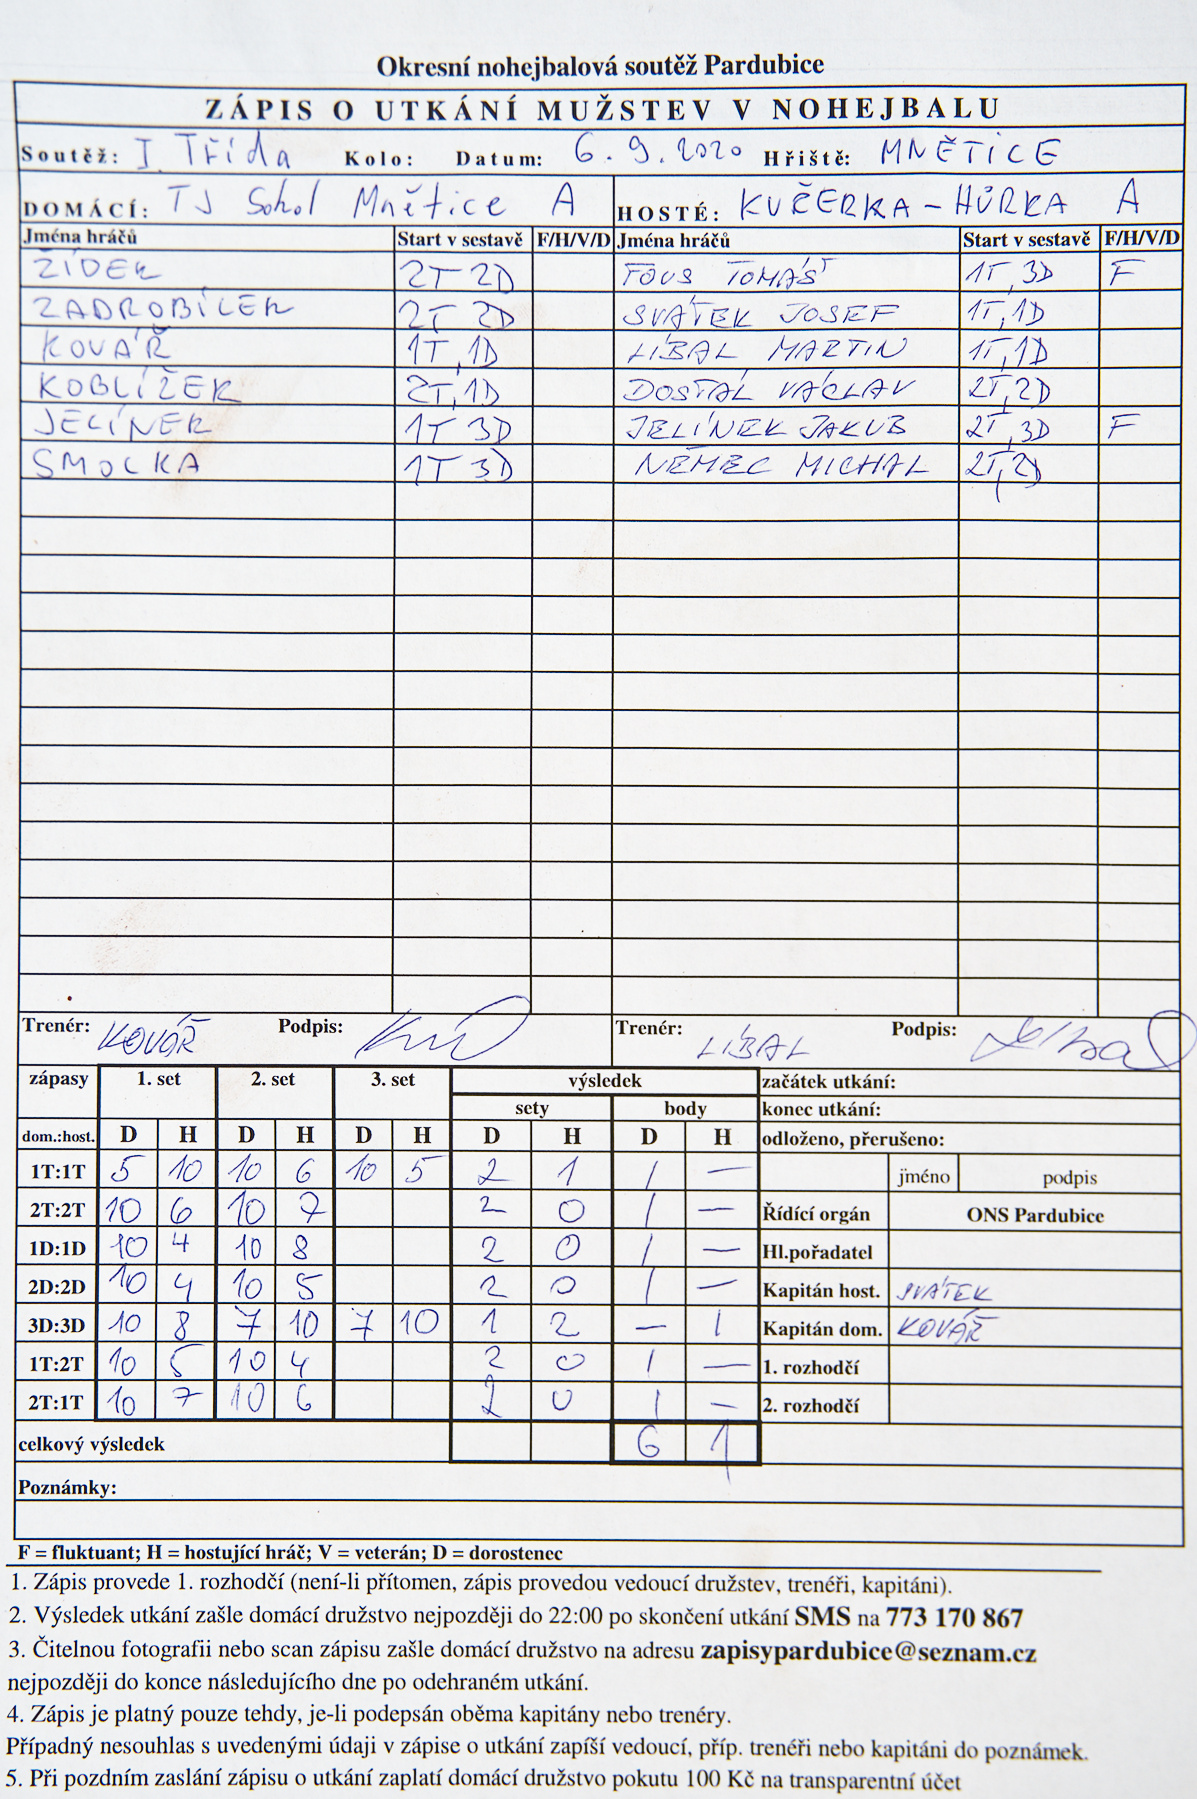 Okresní nohejbalová soutěž Pardubice
ZÁPIS O UTKÁNÍ MUŽSTEV V NOHEJBALU
Soutěž: I. Třída Kolo: Datum: 6.9.2020 Hřiště: MNĚTICE
DOMÁCÍ: TJ Sokol Mnětice A HOSTÉ: KUČERKA - HŮRKA A
Jména hráčů Start v sestavě F/H/V/D Jména hráčů Start v sestavě F/H/V/D
ŽÍDEK 2T 2D FOUS TOMÁŠ 1T,3D F
ZADROBÍLEK 2T 2D SVÁTEK JOSEF 1T,1D
KOVÁŘ 1T,1D LÍBAL MARTIN 1T,1D
KOBLÍŽEK 2T,1D DOSTÁL VÁCLAV 2T,2D
JELÍNEK 1T 3D JELÍNEK JAKUB 2T,3D F
SMOLKA 1T 3D NĚMEC MICHAL 2T,2D
Trenér: KOVÁŘ Podpis: Trenér: LÍBAL Podpis:
zápasy 1. set 2. set 3. set výsledek začátek utkání:
sety body konec utkání:
dom.:host. D H D H D H D H D H odloženo, přerušeno:
1T:1T 5 10 10 6 10 5 2 1 1 — jméno podpis
2T:2T 10 6 10 7 2 0 1 — Řídící orgán ONS Pardubice
1D:1D 10 4 10 8 2 0 1 — Hl.pořadatel
2D:2D 10 4 10 5 2 0 1 — Kapitán host. SVÁTEK
3D:3D 10 8 7 10 7 10 1 2 — 1 Kapitán dom. KOVÁŘ
1T:2T 10 5 10 4 2 0 1 — 1. rozhodčí
2T:1T 10 7 10 6 2 0 1 — 2. rozhodčí
celkový výsledek 6 1
Poznámky:
F = fluktuant; H = hostující hráč; V = veterán; D = dorostenec
1. Zápis provede 1. rozhodčí (není-li přítomen, zápis provedou vedoucí družstev, trenéři, kapitáni).
2. Výsledek utkání zašle domácí družstvo nejpozději do 22:00 po skončení utkání SMS na 773 170 867
3. Čitelnou fotografii nebo scan zápisu zašle domácí družstvo na adresu zapisypardubice@seznam.cz
nejpozději do konce následujícího dne po odehraném utkání.
4. Zápis je platný pouze tehdy, je-li podepsán oběma kapitány nebo trenéry.
Případný nesouhlas s uvedenými údaji v zápise o utkání zapíší vedoucí, příp. trenéři nebo kapitáni do poznámek.
5. Při pozdním zaslání zápisu o utkání zaplatí domácí družstvo pokutu 100 Kč na transparentní účet